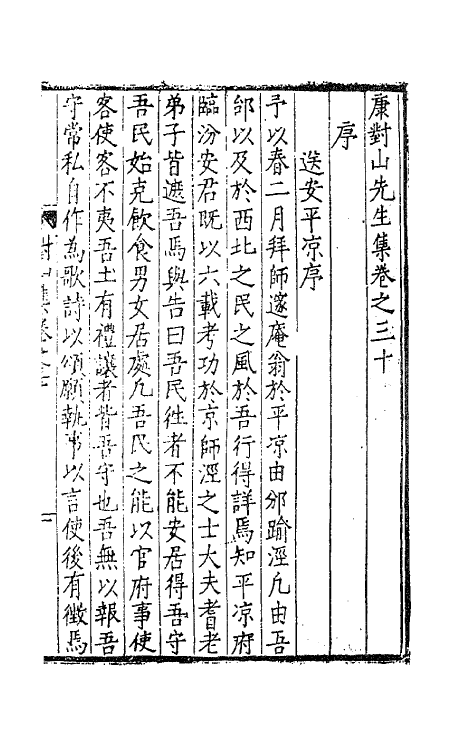 康對山先生集卷之三十
序
送安平凉序
予以春二月拜師邃庵翁於平凉由邠踰涇凡由吾
邰以及於西北之民之風於吾行得詳焉知平凉府
臨汾安君既以六載考功於京師涇之士大夫耆老
弟子皆遮吾馬與告曰吾民徃者不能安居得吾守
吾民始克飲食男女居處凡吾民之能以官府事使
客使客不夷吾土有禮讓者皆吾守也吾無以報吾
守常私自作為歌詩以頌願執事以言使後有徵焉
對山集卷之三十
一